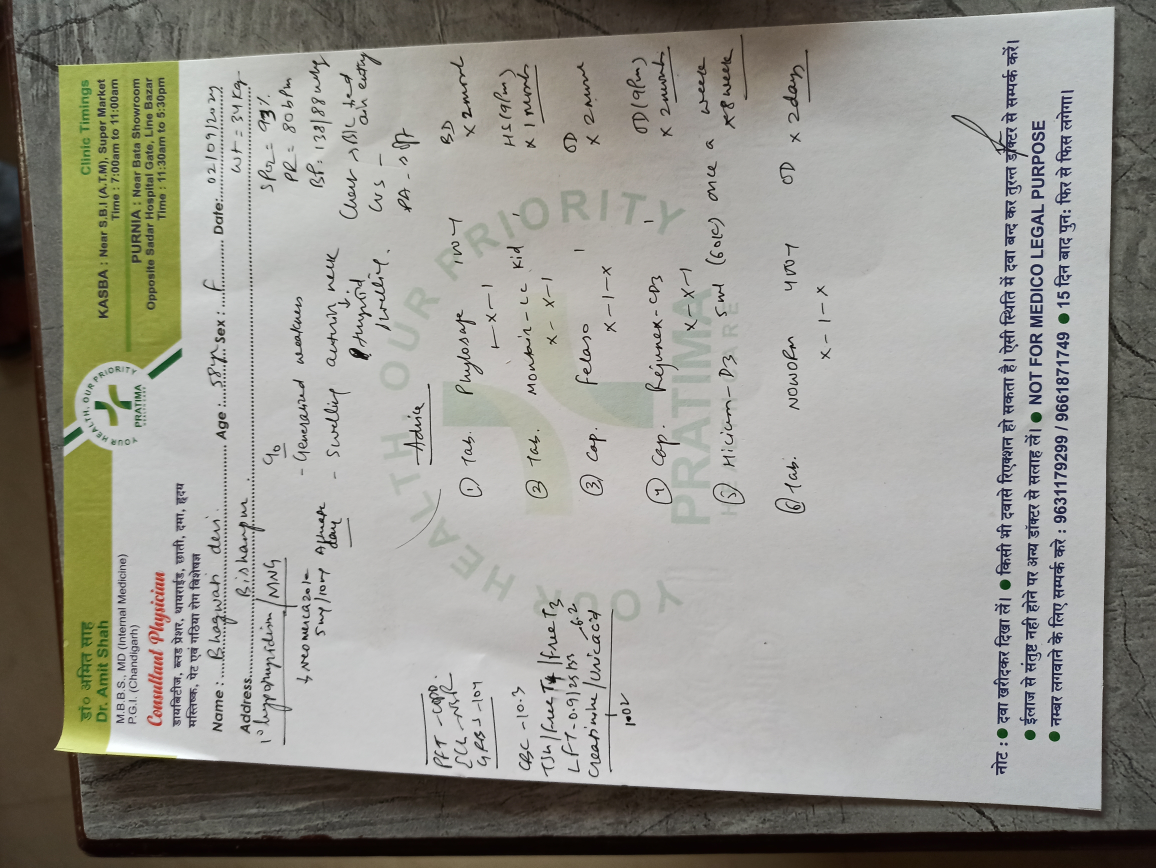 डॉ० अमित साह
Dr. Amit Shah
M.B.B.S., MD (Internal Medicine)
P.G.I. (Chandigarh)
Consultant Physician
डायबिटीज, ब्लड प्रेशर, थायराईड, छाती, दमा, हृदय
मस्तिष्क, पेट एवं गठिया रोग विशेषज्ञ
YOUR HEALTH, OUR PRIORITY
PRATIMA
Clinic Timings
KASBA : Near S.B.I (A.T.M), Super Market
Time : 7:00am to 11:00am
PURNIA : Near Bata Showroom
Opposite Sadar Hospital Gate, Line Bazar
Time : 11:30am to 5:30pm
Name : Bhagwati devi Age : 58yr Sex : F Date: 02/09/2024
Address Bishanpur wt = 34 kg
hypothyroidism / MNG
neomercazole
5mg/10mg Alternate day
PFT - COPD
GRBS - 104
CBC - 10.3
TSH/Free T4/Free T3
LFT - 0.9/25/
Creatinine/Uricacid
1.02 6.2
C/o
- Generalized weakness
- Swelling neck
thyroid
swelling
SPO2 = 93%
PR = 80 bpm
BP: 138/88 mmHg
Chest → B/L
air entry
CVS -
PA -
Advice
① Tab. Phylosafe BD
1-x-1 x 2 month
② Tab. Montair-LC Kid HS (9pm)
x-x-1 x 1 month
③ Cap. Felaso OD
x-1-x x 2 month
④ Cap. Rejunex-CD3 OD (9pm)
x-x-1 x 2 month
⑤ D3 5ml (60K) once a week
x 8 week
⑥ Tab. 400 OD
x-1-x x 2 days
YOUR HEALTH OUR PRIORITY
PRATIMA
HEALTHCARE
नोट : ● दवा खरीदकर दिखा लें। ● किसी भी दवासे रिएक्शन हो सकता है। ऐसी स्थिति में दवा बन्द कर तुरन्त डॉक्टर से सम्पर्क करें।
● ईलाज से संतुष्ट नही होने पर अन्य डॉक्टर से सलाह लें। ● NOT FOR MEDICO LEGAL PURPOSE
● नम्बर लगवाने के लिए सम्पर्क करे : 9631179299 / 9661871749 ● 15 दिन बाद पुनः फिर से फिस लगेगा।